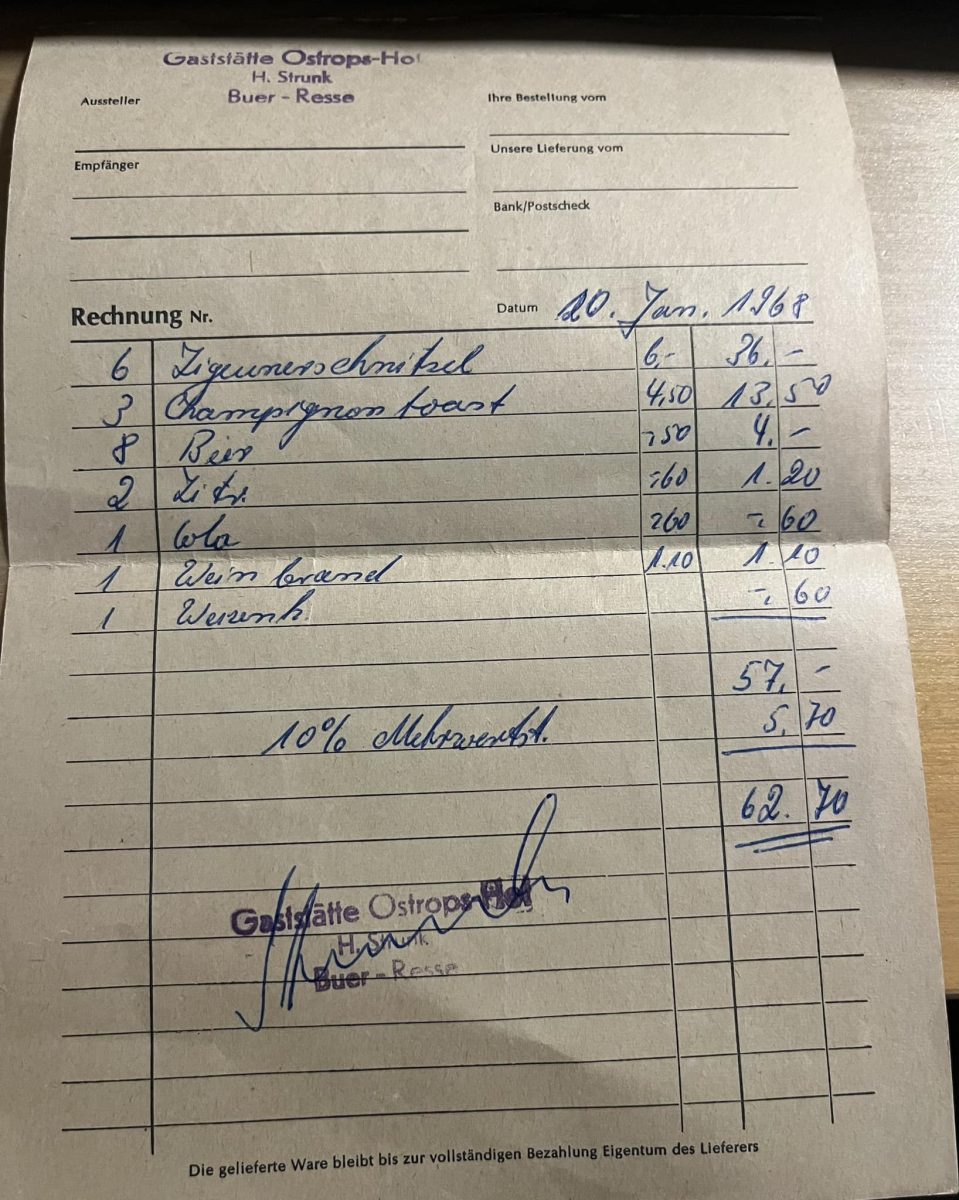 Gaststätte Ostrops-Hof
H. Strunk
Buer - Resse
Aussteller
Ihre Bestellung vom
Unsere Lieferung vom
Empfänger
Bank/Postscheck
Rechnung Nr.
Datum 20. Jan. 1968
6 Zigeunerschnitzel 6,- 36,-
3 Champignontoast 4,50 13,50
8 Bier -,50 4.-
2 Zitr. -,60 1.20
1 Cola -,60 -,60
1 Weinbrand 1.10 1.10
1 Weizenk. -,60
57,-
10% Mehrwertst. 5,70
62.70
Gaststätte Ostrops-Hof
H. Strunk
Buer - Resse
Die gelieferte Ware bleibt bis zur vollständigen Bezahlung Eigentum des Lieferers